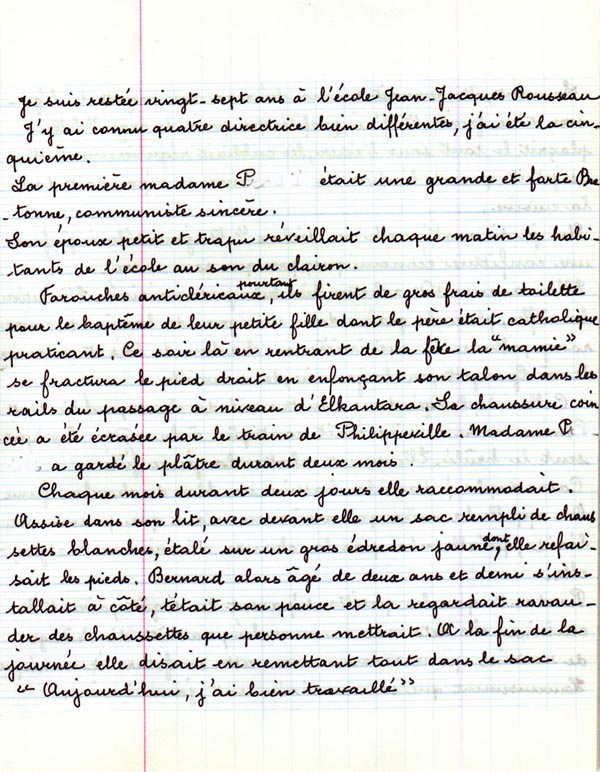 Je suis restée vingt-sept ans à l'école Jean-Jacques Rousseau
J'y ai connu quatre directrice bien différentes, j'ai été la cin-
quième.
La première madame P était une grande et forte Bre
-tonne, communiste sincère.
Son époux petit et trapu réveillait chaque matin les habi-
tants de l'école au son du clairon.
Farouches anticléricaux, pourtant ils firent de gros frais de toilette
pour le baptême de leur petite fille dont le père était catholique
pratiquant. Ce soir là en rentrant de la fête la "mamie"
se fractura le pied droit en enfonçant son talon dans les
rails du passage à niveau d'Elkantara. Sa chaussure coin
cée a été écrasée par le train de Philippeville. Madame P
a gardé le plâtre durant deux mois.
Chaque mois durant deux jours elle raccommodait.
Assise dans son lit, avec devant elle un sac rempli de chaus
settes blanches, étalé sur un gros édredon jaune, dont elle refai-
sait les pieds. Bernard alors âgé de deux ans et demi s'ins-
tallait à côté, tétait son pouce et la regardait ravau-
der des chaussettes que personne mettrait. A la fin de la
journée elle disait en remettant tout dans le sac
"Aujourd'hui, j'ai bien travaillé"